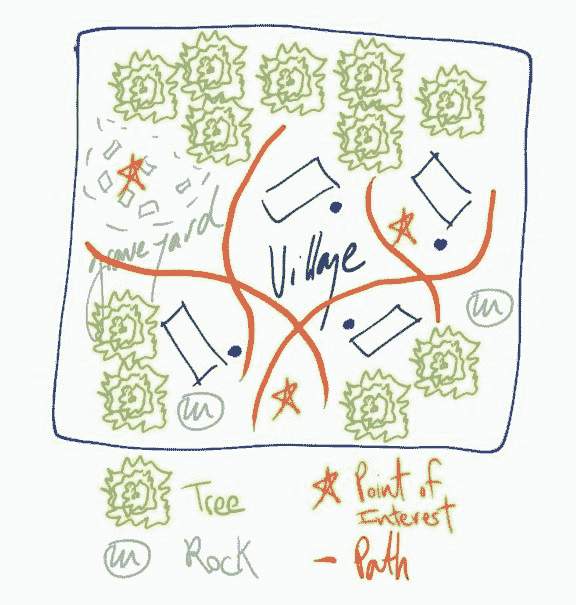 graveyard
Village
m
m
Tree
Point of
Interest
m
Rock
- Path